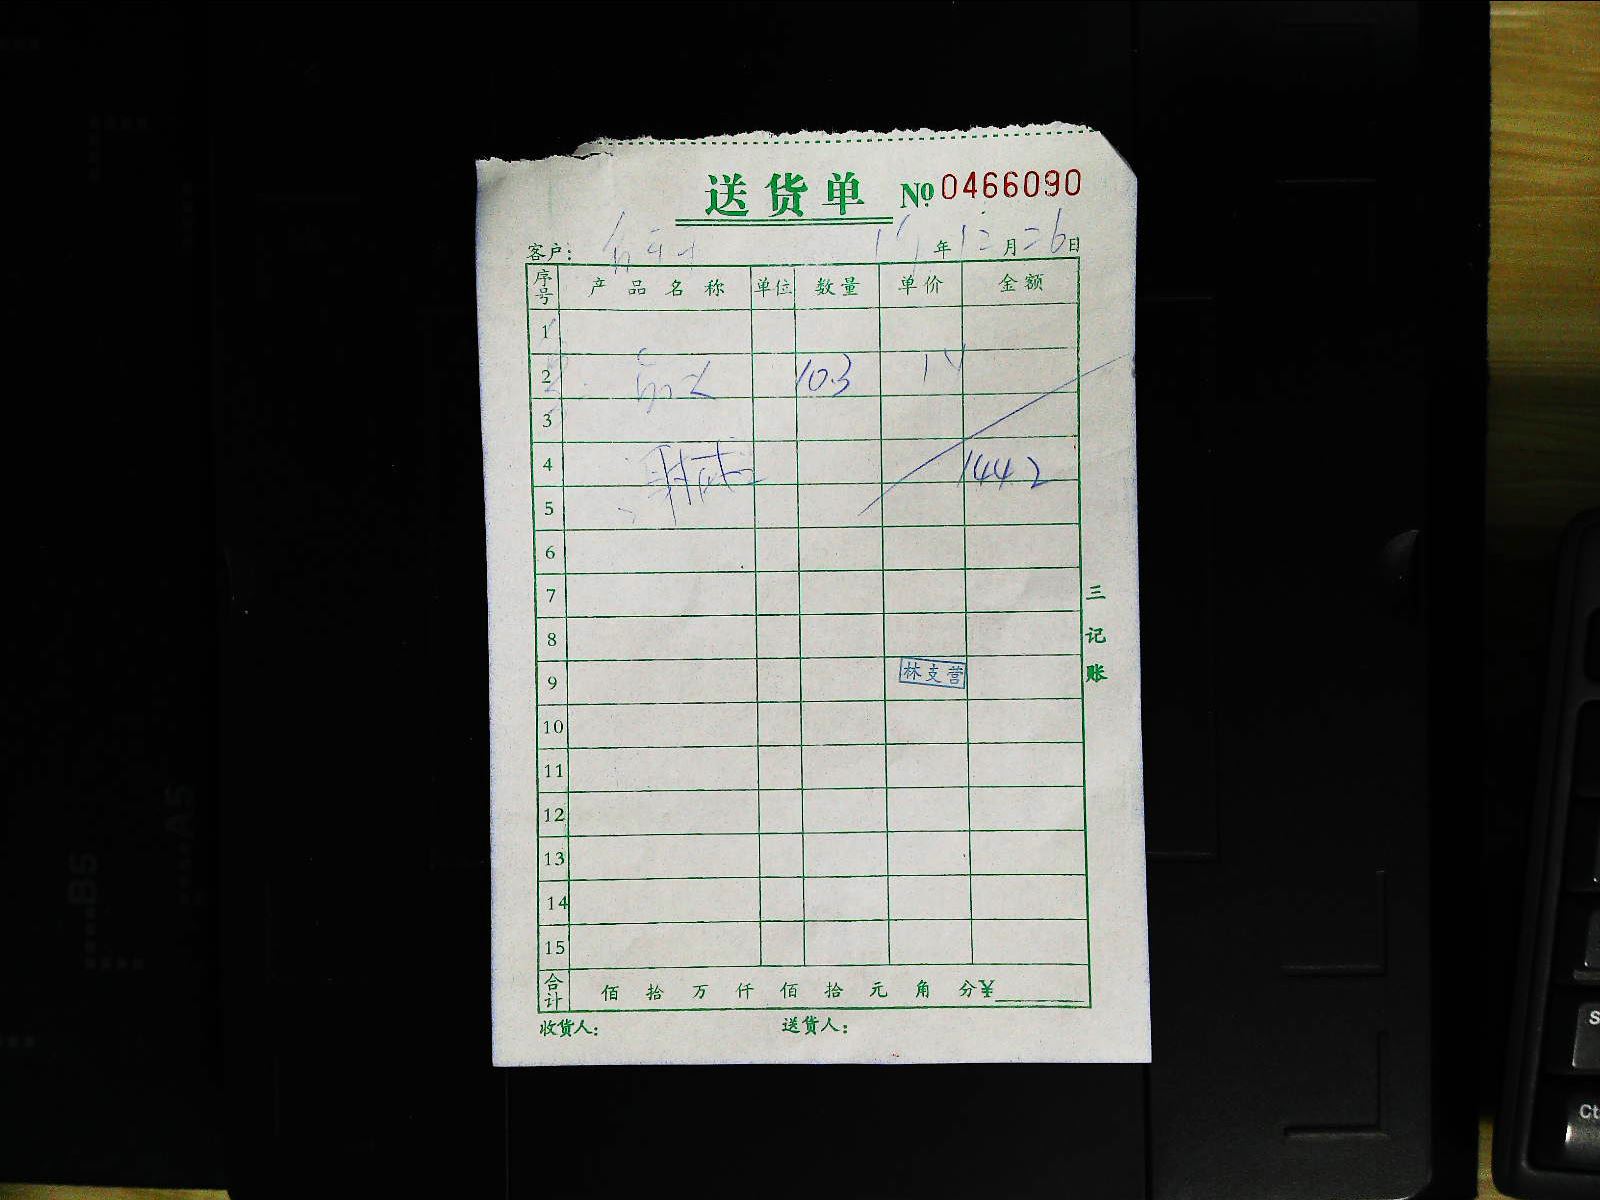 送货单 No 0466090
客户: 年12月26日
序号 产品名称 单位 数量 单价 金额
1
2 103 14
3
4 144.2
5
6
7
8
9 林支营
10
11
12
13
14
15
合计 佰 拾 万 仟 佰 拾 元 角 分¥
收货人: 送货人:
三记账
B5
A5